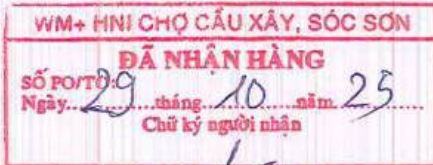 WM+ HNI CHỢ CẦU XÂY, SÓC SƠN
ĐÃ NHẬN HÀNG
SỐ PO/TO:
Ngày 29 tháng 10 năm 25
Chữ ký người nhận